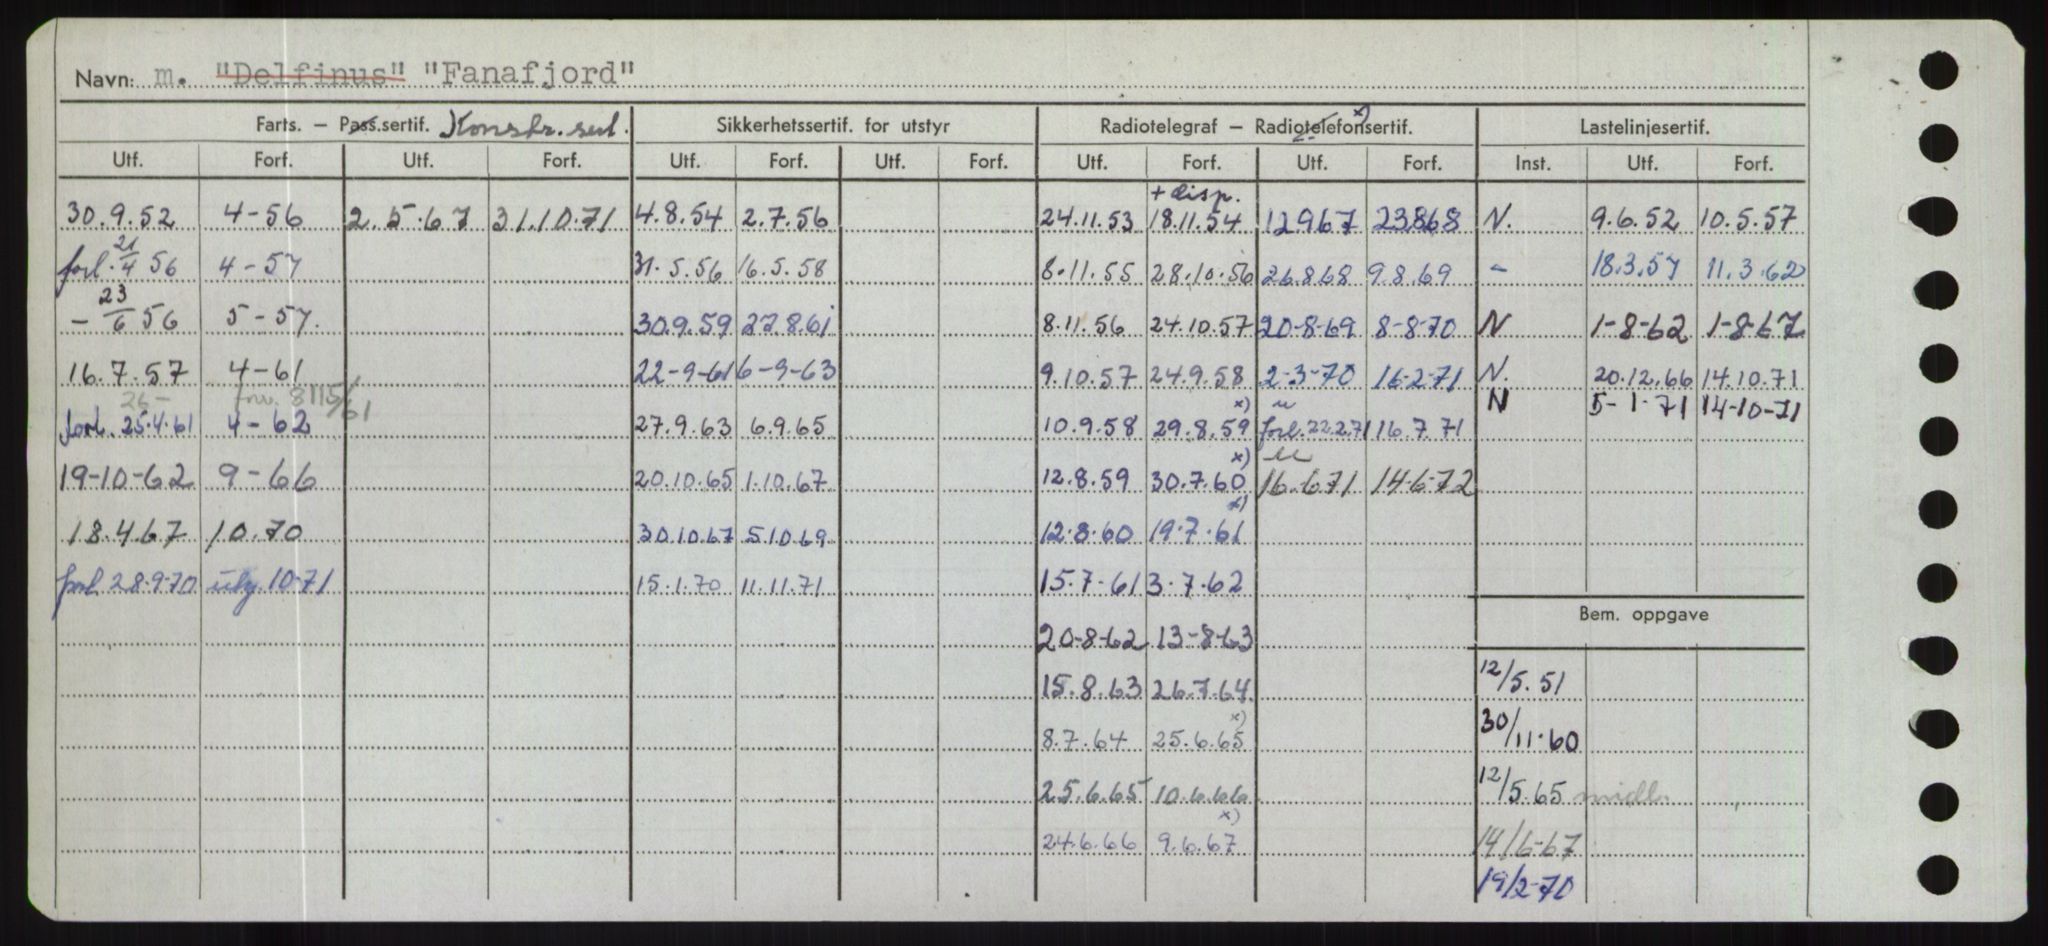 Navn: m. "Delfinus" "Fanafjord"
Farts. – Pass.sertif. Konstr. sert. Sikkerhetssertif. for utstyr Radiotelegraf – Radiotelefonsertif. x) Lastelinjesertif.
Utf. Forf. Utf. Forf. Utf. Forf. Utf. Forf. Utf. Forf. Utf. Forf. Inst. Utf. Forf.
+ disp.
30.9.52 4-56 2.5.67 31.10.71 4.8.54 2.7.56 24.11.53 18.11.54 12.9.67 23.8.68 N. 9.6.52 10.5.57
forl. 21/4 56 4-57 31.5.56 16.5.58 8.11.55 28.10.56 26.8.68 9.8.69 – 18.3.57 11.3.62
– 23/6 56 5-57. 30.9.59 27.8.61 8.11.56 24.10.57 20-8-69 8-8-70 N 1-8-62 1-8-67
16.7.57 4-61 22-9-61 6-9-63 9.10.57 24.9.58 2-3-70 16-2-71 N. 20.12.66 14.10.71
26- 8115/61 x) N 5-1-71 14-10-71
forl. 25.4.61 4-62 27.9.63 6.9.65 10.9.58 29.8.59 forl. 22.2.71 16.7.71
x)
19-10-62 9-66 20.10.65 1.10.67 12.8.59 30.7.60 16.6.71 14.6.72
x)
18.4.67 10.70 30.10.67 5.10.69 12.8.60 19.7.61
forl 28.9.70 utg. 10-71 15.1.70 11.11.71 15.7.61 3.7.62
Bem. oppgave
20-8-62 13-8-63
15.8.63 26.7.64. 12/5.51
x)
8.7.64 25.6.65 30/11.60
25.6.65 10.6.66 12/5.65 midl.
x)
24.6.66 9.6.67 14/6-67
19/2-70